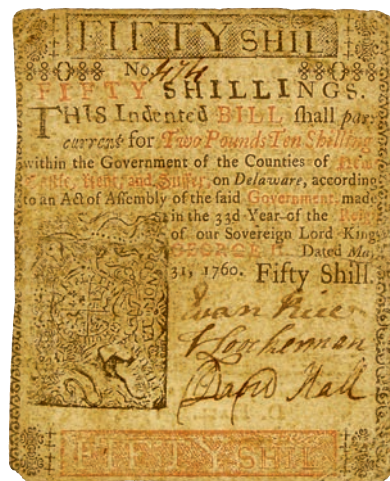 FIFTY SHIL
No. 474
FIFTY SHILLINGS.
THIS Indented BILL ſhall paſs
current for Two Pounds Ten Shilling
within the Government of the Counties of New
Caſtle, Kent, and Suſſex, on Delaware, according
to an Act of Aſſembly of the ſaid Government, made
in the 33d Year of the Reign
of our Sovereign Lord King
GEORGE II. Dated May
31, 1760. Fifty Shill.
Evan Rice
V Loockerman
David Hall
FIFTY SHIL